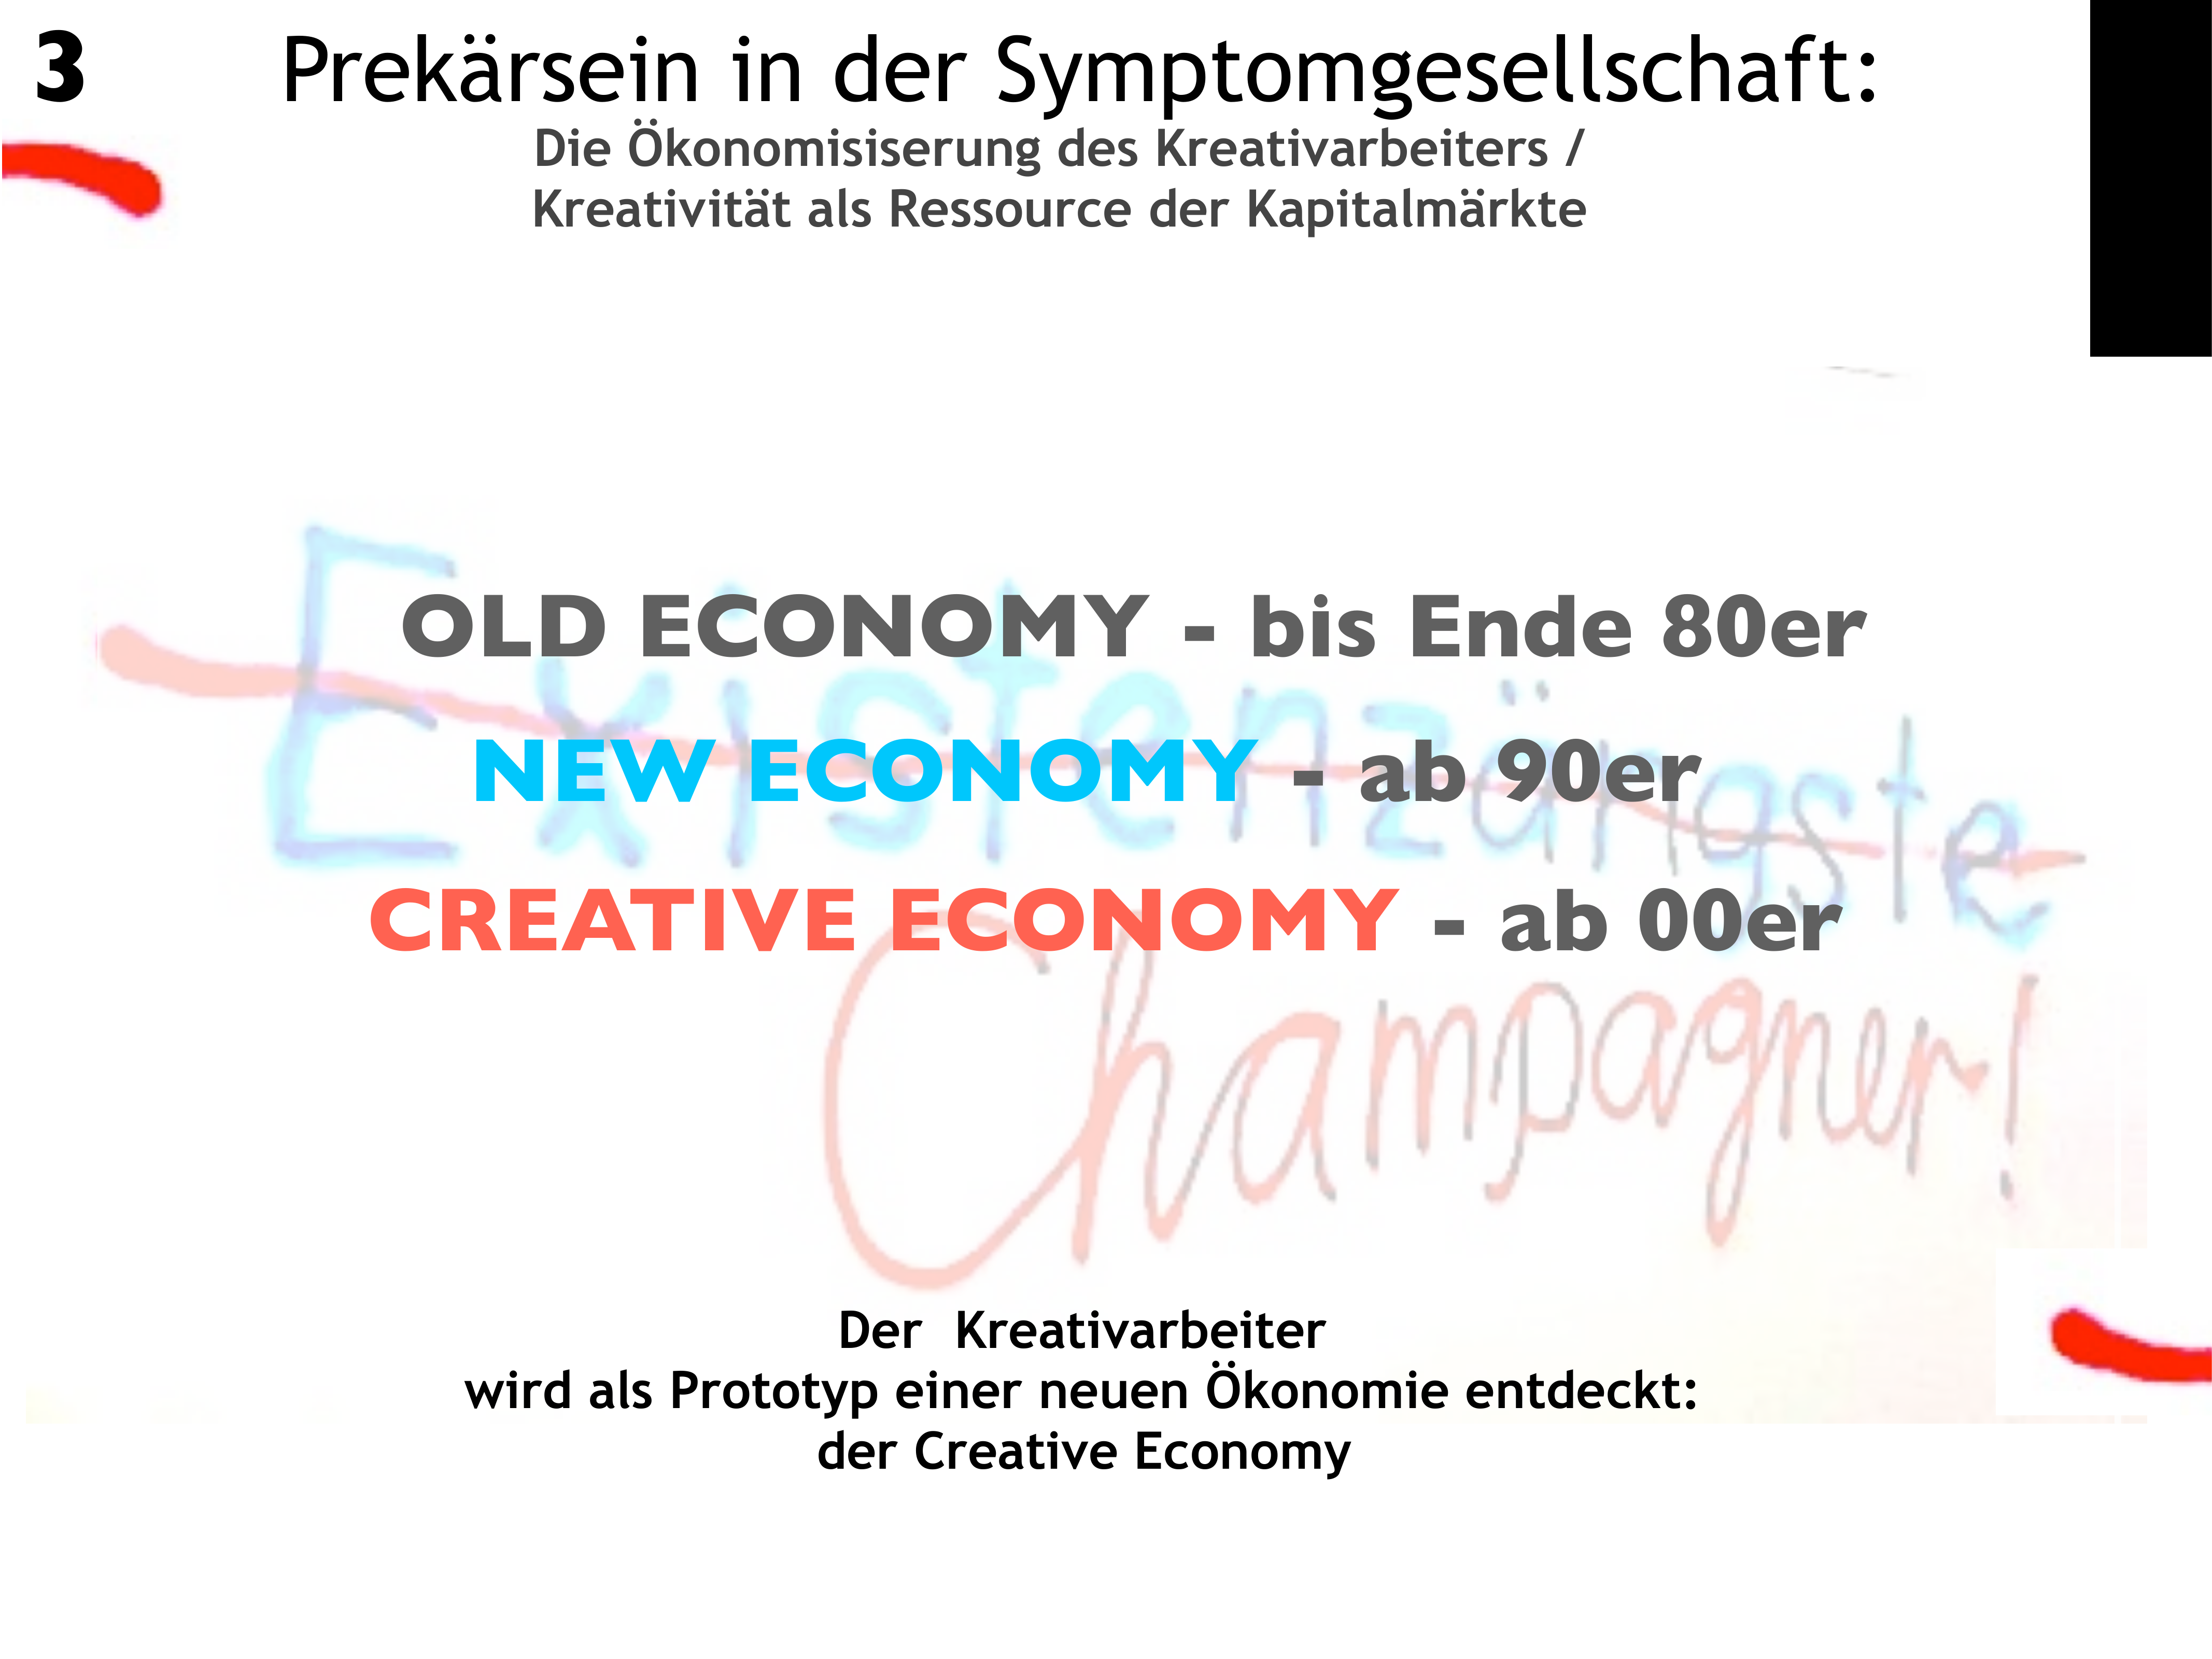 3
Prekärsein in der Symptomgesellschaft:
Die Ökonomisiserung des Kreativarbeiters /
Kreativität als Ressource der Kapitalmärkte
OLD ECONOMY - bis Ende 80er
NEW ECONOMY - ab 90er
CREATIVE ECONOMY - ab 00er
Existenzängste
Champagner!
Der Kreativarbeiter
wird als Prototyp einer neuen Ökonomie entdeckt:
der Creative Economy